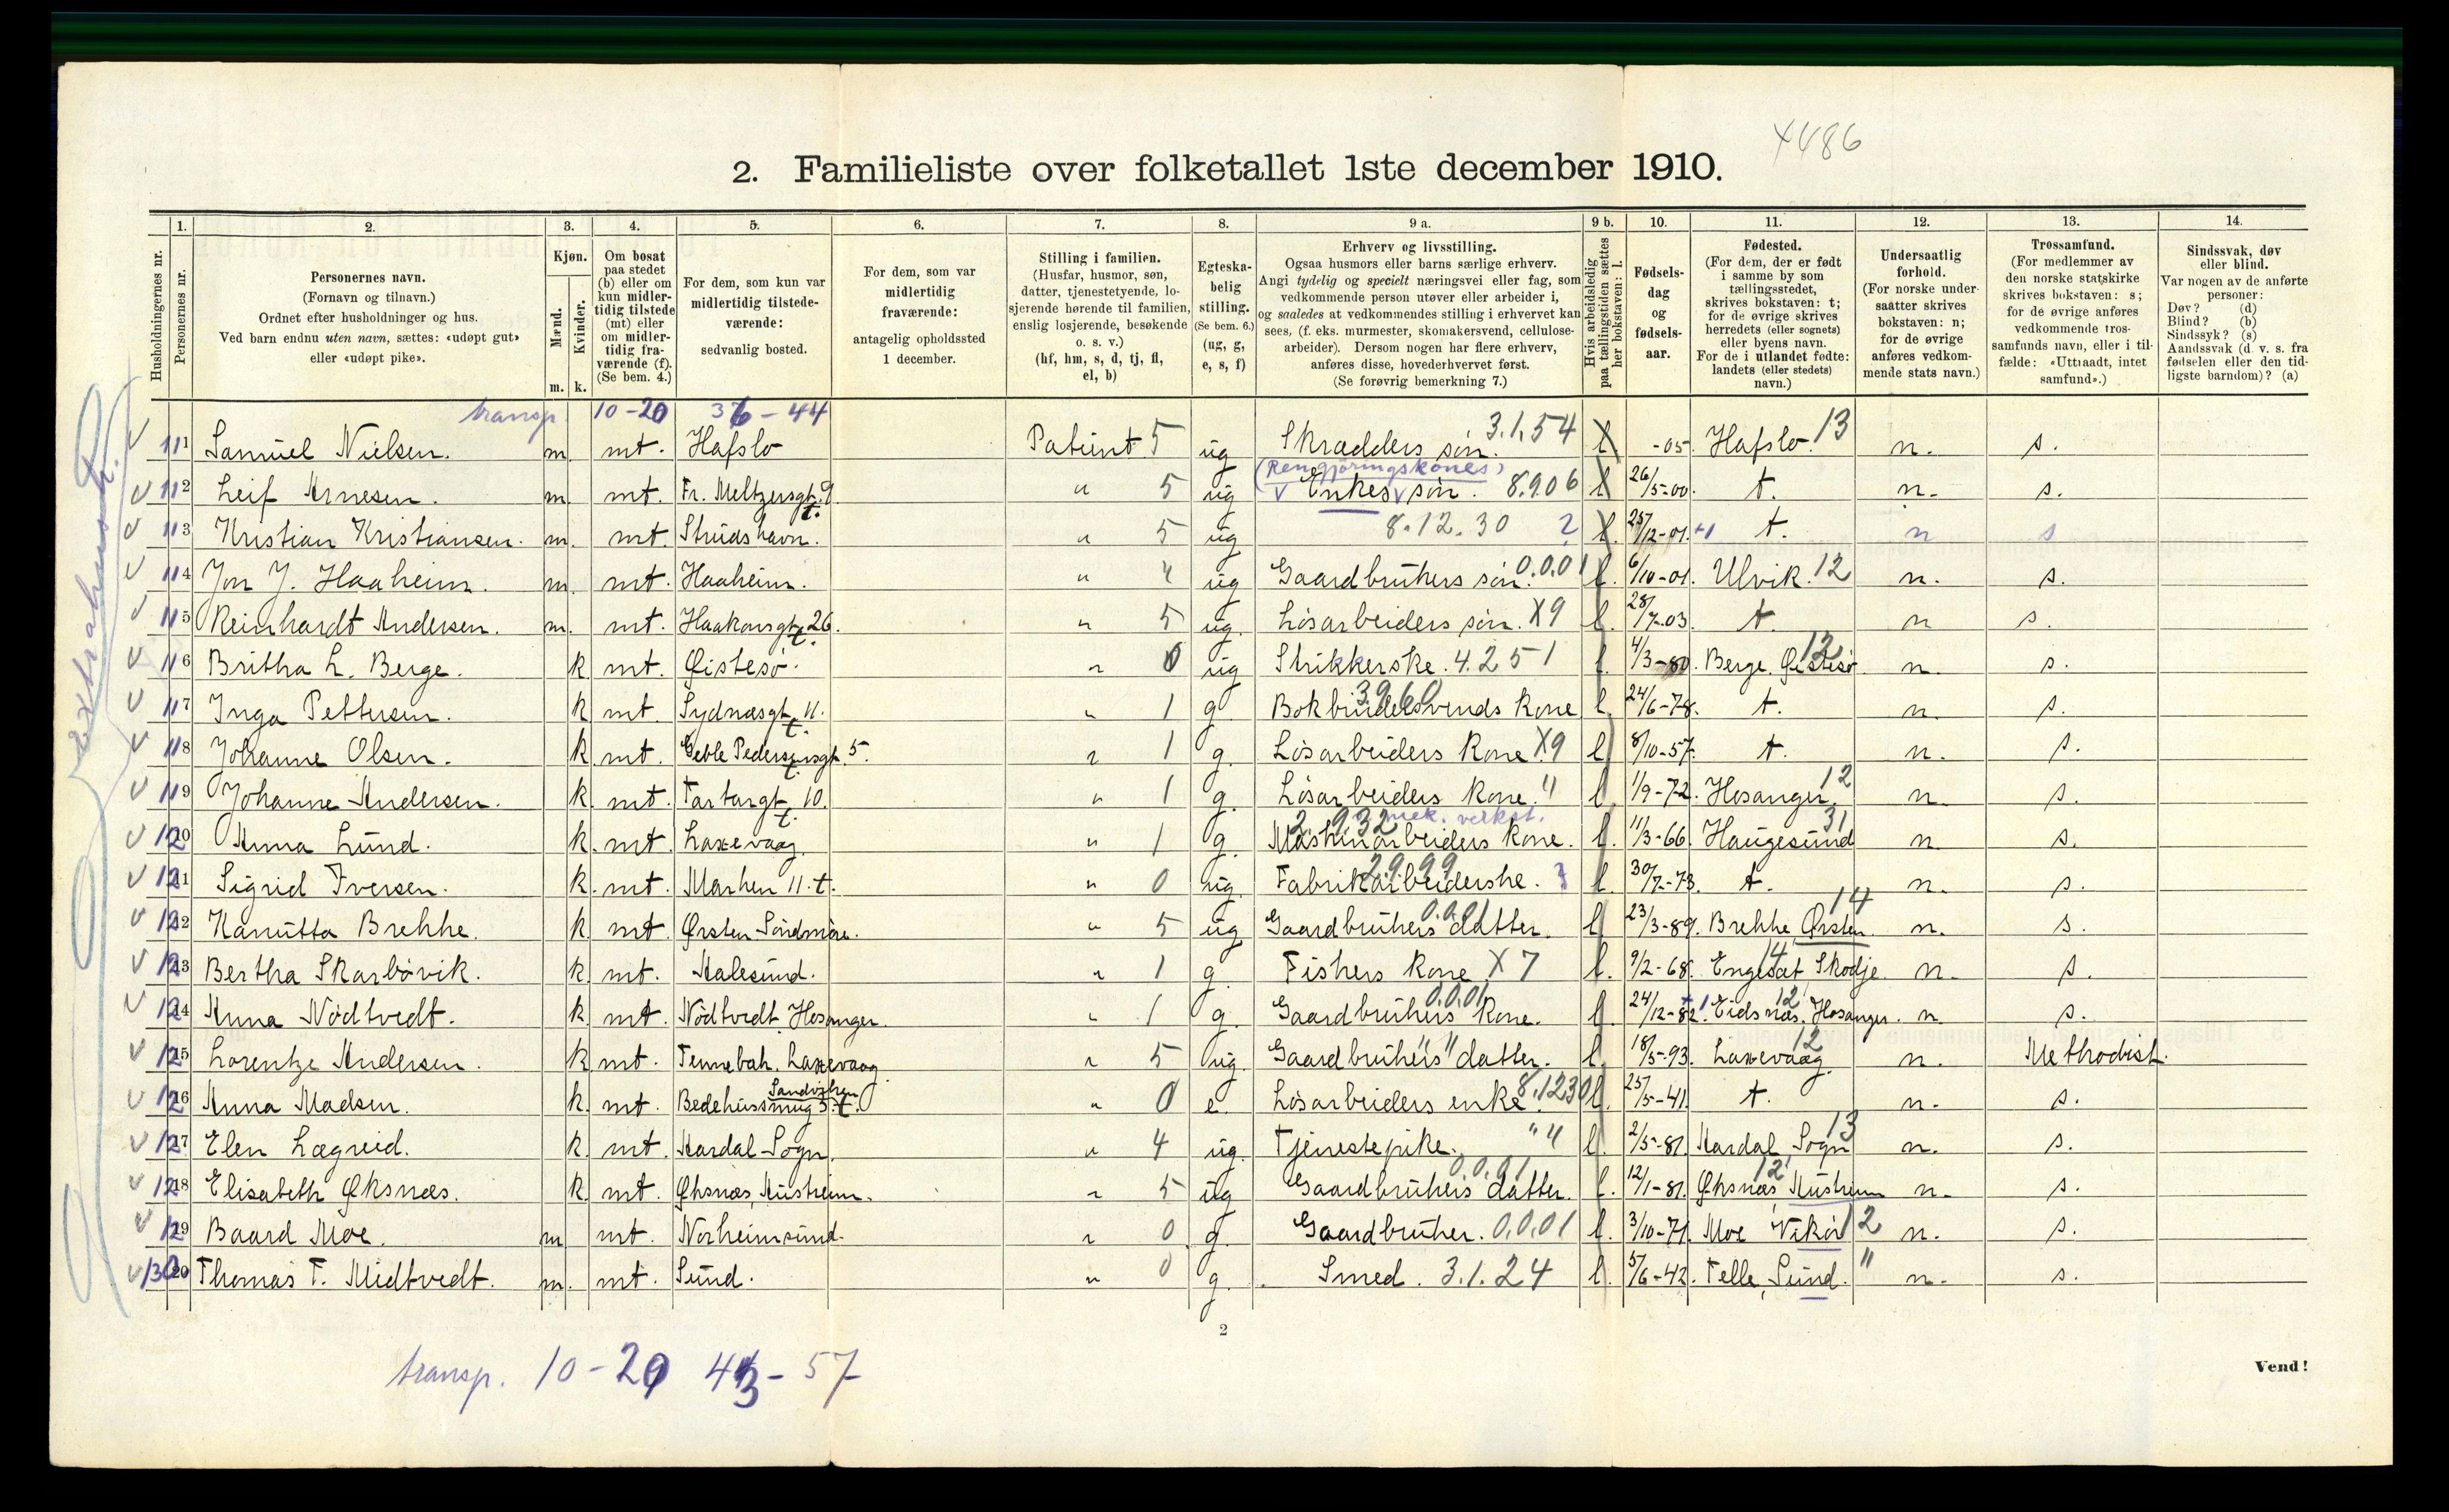 4486
2. Familieliste over folketallet 1ste december 1910.
1. 2. 3. 4. 5. 6. 7. 8. 9 a. 9 b. 10. 11. 12. 13. 14.
Husholdningernes nr.
Personernes nr.
Personernes navn.
(Fornavn og tilnavn.)
Ordnet efter husholdninger og hus.
Ved barn endnu uten navn, sættes: «udøpt gut»
eller «udøpt pike».
Kjøn.
Mænd.
Kvinder.
m. k.
Om bosat
paa stedet
(b) eller om
kun midler-
tidig tilstede
(mt) eller
om midler-
tidig fra-
værende (f).
(Se bem. 4.)
For dem, som kun var
midlertidig tilstede-
værende:
sedvanlig bosted.
For dem, som var
midlertidig
fraværende:
antagelig opholdssted
1 december.
Stilling i familien.
(Husfar, husmor, søn,
datter, tjenestetyende, lo-
sjerende hørende til familien,
enslig losjerende, besøkende
o. s. v.)
(hf, hm, s, d, tj, fl,
el, b)
Egteska-
belig
stilling.
(Se bem. 6.)
(ug, g,
e, s, f)
Erhverv og livsstilling.
Ogsaa husmors eller barns særlige erhverv.
Angi tydelig og specielt næringsvei eller fag, som
vedkommende person utøver eller arbeider i,
og saaledes at vedkommendes stilling i erhvervet kan
sees, (f. eks. murmester, skomakersvend, cellulose-
arbeider). Dersom nogen har flere erhverv,
anføres disse, hovederhvervet først.
(Se forøvrig bemerkning 7.)
Hvis arbeidsledig
paa tællingstiden sættes
her bokstaven: l.
Fødsels-
dag
og
fødsels-
aar.
Fødested.
(For dem, der er født
i samme by som
tællingsstedet,
skrives bokstaven: t;
for de øvrige skrives
herredets (eller sognets)
eller byens navn.
For de i utlandet fødte:
landets (eller stedets)
navn.)
Undersaatlig
forhold.
(For norske under-
saatter skrives
bokstaven: n;
for de øvrige
anføres vedkom-
mende stats navn.)
Trossamfund.
(For medlemmer av
den norske statskirke
skrives bokstaven: s;
for de øvrige anføres
vedkommende tros-
samfunds navn, eller i til-
fælde: «Uttraadt, intet
samfund».)
Sindssvak, døv
eller blind.
Var nogen av de anførte
personer:
Døv? (d)
Blind? (b)
Sindssyk? (s)
Aandssvak (d. v. s. fra
fødselen eller den tid-
ligste barndom)? (a)
transp. 10-20 36-44
111 Samuel Nielsen. m. mt. Hafslo Patient 5 ug Skrædders søn. 3.1.54 l -05. Hafslo. 13 n. s.
(Rengjøringskones)
112 Leif Arnesen. m. mt. Fr. Meltzersgt. 9 t. " 5 ug Enkes søn. 8.9.06 l 26/5-00. t. n. s.
113 Kristian Kristiansen. m. mt. Strudshavn. " 5 ug 8.12.30 ? l. 25/12-01. +1 t. n s
114 Jon J. Haaheim. m. mt. Haaheim. " 4 ug Gaardbrukers søn. 0.0.01 l. 6/10-01. Ulvik. 12 n. s.
115 Reinhardt Andersen. m. mt. Haakonsgt. 26. t. " 5 ug. Løsarbeiders søn. X9 l. 28/7-03. t. n s.
116 Britha L. Berge. k mt. Øistesø. " 0 ug Strikkerske. 4.251 l. 4/3-80. Berge. Øistesø 12 n. s.
117 Inga Pettersen. k mt. Sydnæsgt. 11. t. " 1 g Bokbindersvends kone 3960 l. 24/6-78. t. n. s.
118 Johanne Olsen. k mt. Geble Pedersensgt. 5. t. " 1 g. Løsarbeiders kone X9 l 8/10-57. t. n. s.
119 Johanne Andersen. k. mt. Tartargt. 10. t. " 1 g. Løsarbeiders kone. " l. 1/9-72. Hosanger. 12 n. s.
mek. verkst.
120 Anna Lund. k. mt. Laxevaag. " 1 g. Maskinarbeiders kone. 2.932 l. 11/3-66. Haugesund 31 n. s.
121 Sigrid Iversen. k. mt. Marken 11. t. " 0 ug Fabrikarbeiderske. 2.9.99 ? l. 30/7-73. t. n. s.
122 Kanutta Brekke. k mt. Ørsten Søndmøre. " 5 ug Gaardbrukers datter. 0.0.01 l 23/3-89. Brekke, Ørsten 14 n. s.
123 Bertha Skarbøvik. k. mt. Aalesund. " 1 g Fiskers kone X7 l. 9/2-68. Engeset Skodje 14 n. s.
124 Anna Nødtvedt. k. mt. Nødtvedt, Hosanger. " 1 g. Gaardbrukers kone. 0.0.01 l. 24/12-82. +1 Eidsnæs. Hosanger. 12 n. s.
125 Lorentze Andersen. k. mt. Tennebak. Laxevaag " 5 ug. Gaardbrukers datter. " " l. 18/5-93. Laxevaag 12 n. Methodist.
Sandviken
126 Anna Madsen. k. mt. Bedehussmug 5. t. " 0 e. Løsarbeiders enke. 8.1230 l. 25/5-41. t. n. s.
127 Elen Lægreid. k. mt. Aardal Sogn. " 4 ug. Tjenestepike. " " l. 2/5-81. Aardal, Sogn 13 n. s.
128 Elisabeth Øksnæs. k. mt. Øksnæs, Austrheim. " 5 ug Gaardbrukers datter. 0.0.01 l. 12/1-81. Øksnæs, Austrheim 12 n. s.
129 Baard Moe. m mt. Norheimsund. " 0 g. Gaardbruker. 0.0.01 l. 3/10-71. Moe Vikør 12 n. s.
130 Thomas T. Midtvedt. m. mt. Sund. " 0 g. Smed. 3.1.24 l. 5/6-42. Telle, Sund. " n. s.
2
transp. 10-29 43-57
Vend!